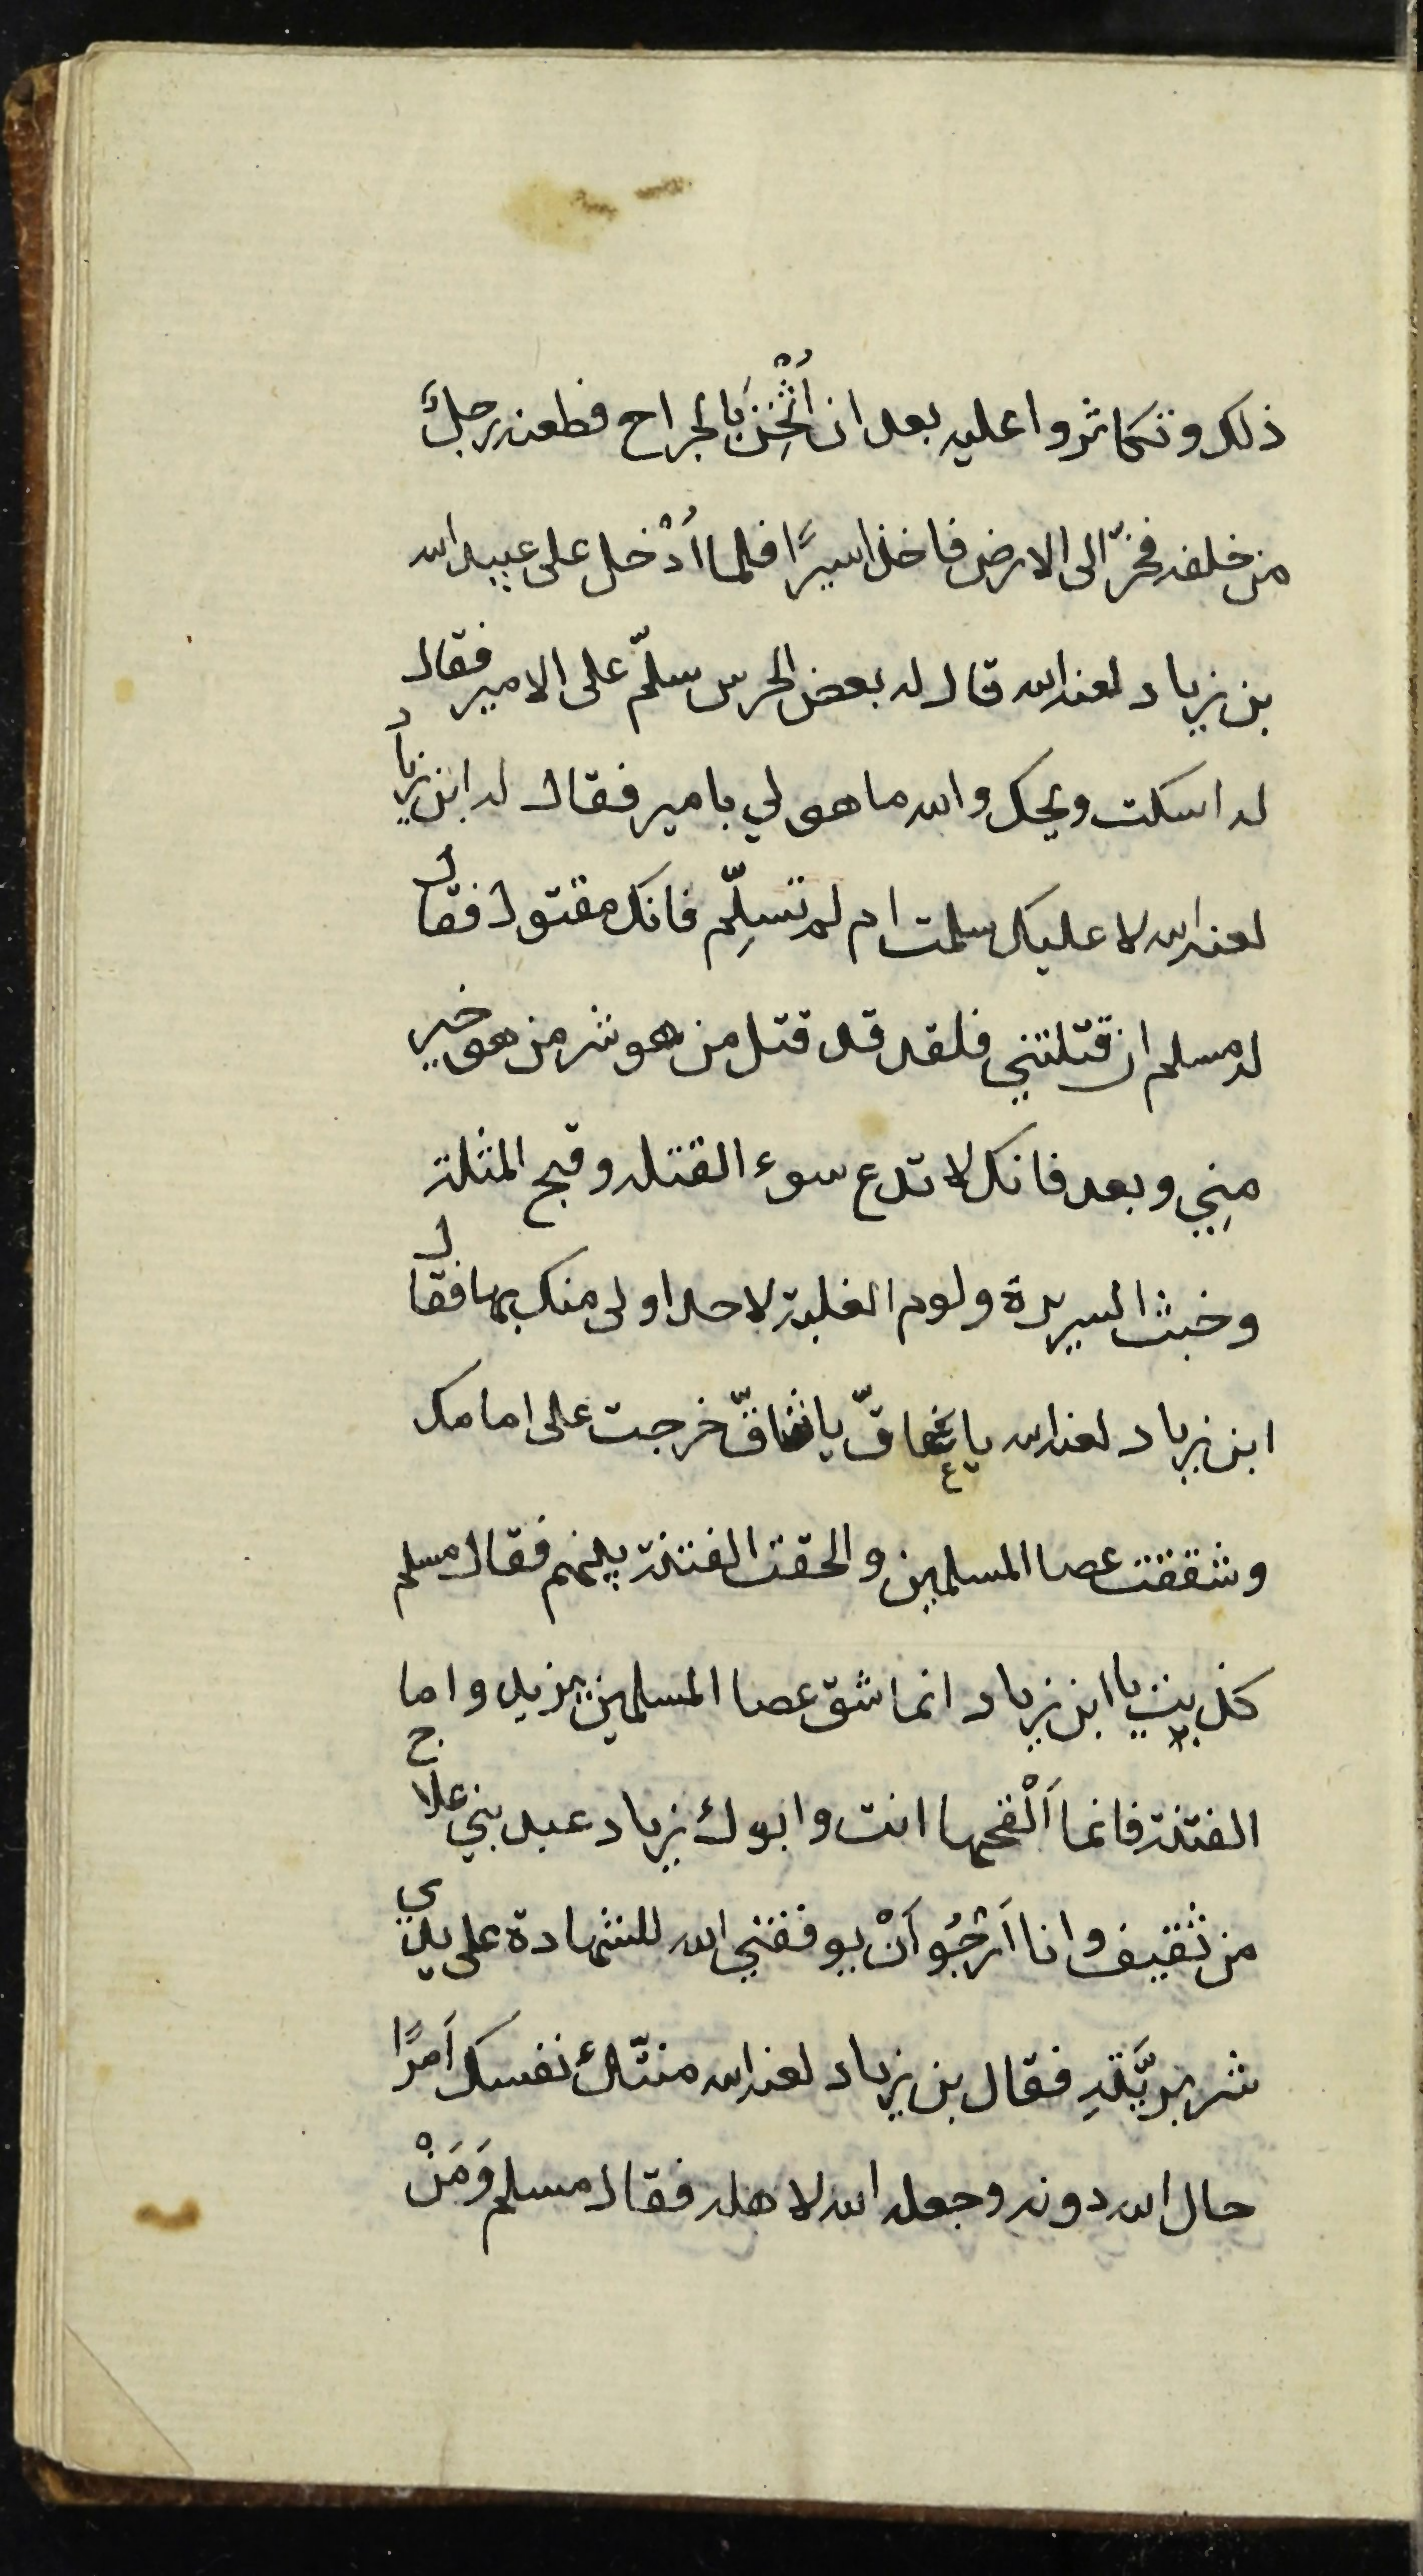 ذلك وتكاثروا عليه بعد ان اُثْخِنَ بالجراح فطعنه رجلٌ
من خلفه فخرّ الى الارض فاخذ اسيرًا فلما اُدْخل على عبيد الله
بن زياد لعنه الله قال له بعض الحرس سلّم على الامير فقال
له اسكت ويحك والله ما هو لي بامير فقال له ابن زياد
لعنه الله لا عليك سلمت ام لم تسلِّم فانك مقتول فقال
له مسلم ان قتلتني فلقد قد قتل من هو شر من هو خير
مِنِي وبعد فانك لا تدع سوء القتله وقبح المثلة
وخبث السريرة ولوم الغلبة لاحد اولى منك بها فقال
ابن زياد لعنه الله يا عاقّ يا شاقّ خرجت على امامك
وشققت عصا المسلمين والحقت الفتنة بينهم فقال مسلم
كذبت يا ابن زياد انما شق عصا المسلمين يزيد واما
الفتنة فانما اَلْقحها انت وابوك زياد عبد بني علاج
من ثقيف وانا اَرْجُو اَنْ يوفقني الله للشهادة على يدي
شر بريَّتِهِ فقال بن زياد لعنه الله منتّك نفسك اَمرًا
حال الله دونه وجعله الله لاهله فقال مسلم وَمَنْ